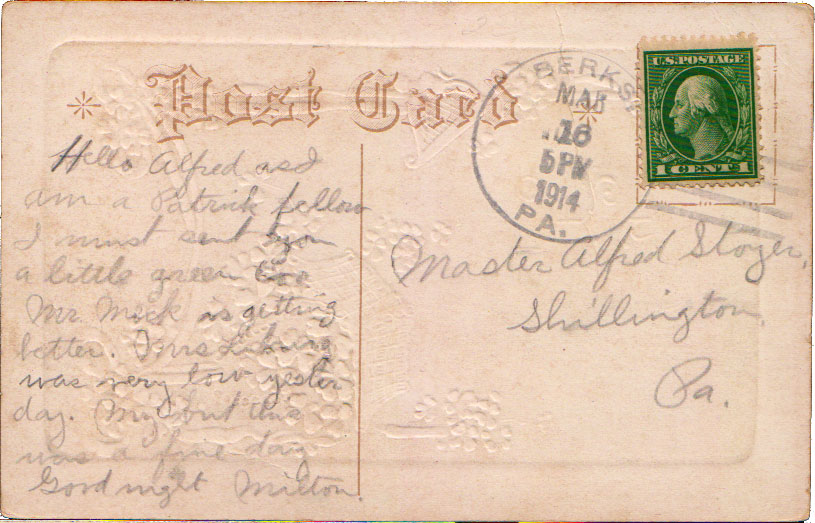 Post Card
BERKS
MAR
16
5 PM
1914
PA.
U.S. POSTAGE
1 CENT 1
Hello Alfred as I
am a Patrick fellow
I must sent you
a little green too
Mr. Mick is getting
better. Mrs
was very low yester
day. My but this
was a fine day
Good night Milton.
Master Alfred Stozer,
Shillington,
Pa.